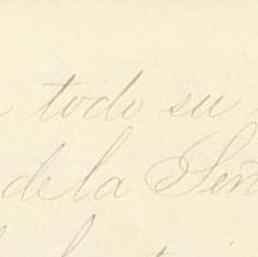 todo su
de la Señ